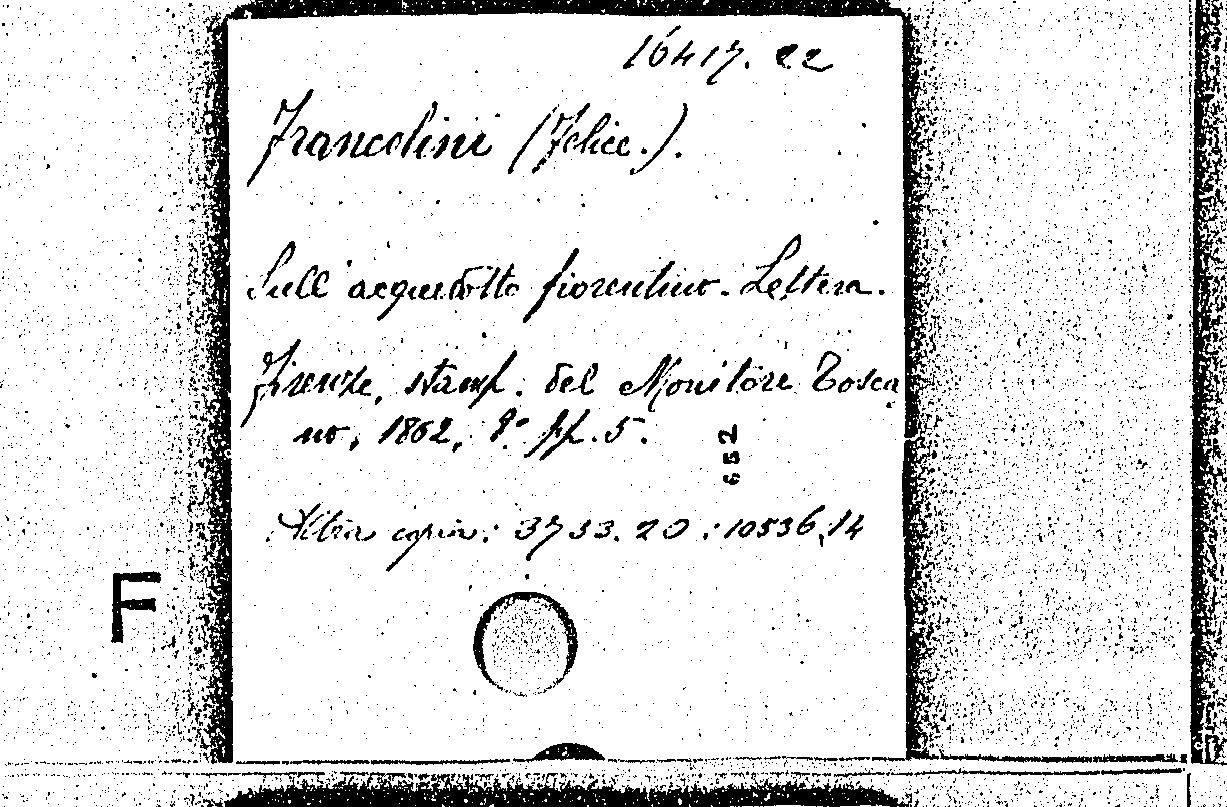 16417. 22
Francolini (Felice.).
Sull'acquedotto fiorentino. Lettera.
Firenze, stamp. del Monitore Tosca
no, 1862, 8.° pp. 5.
652
Altra copia: 3733. 20 : 10536.14
F